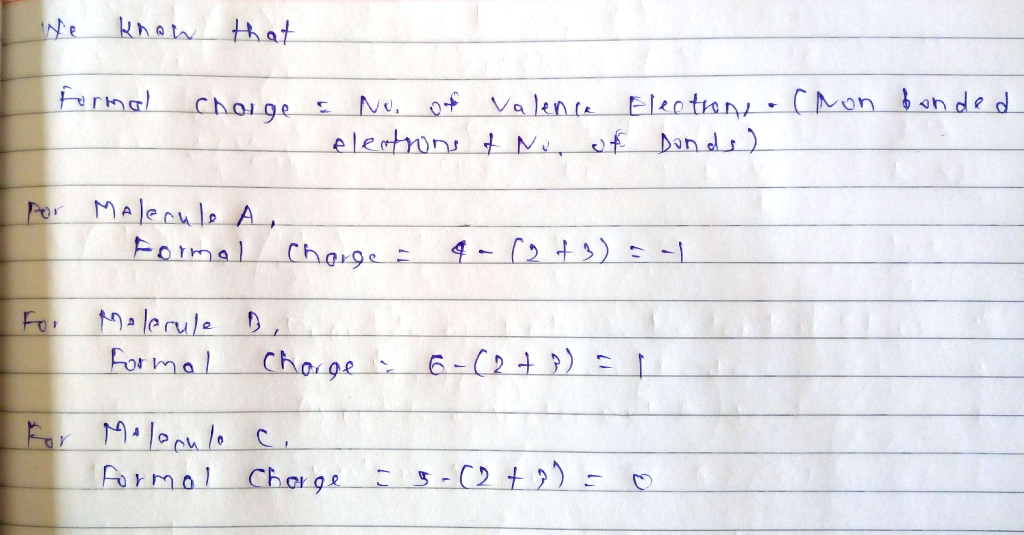 We know that
Formal charge = No. of Valence Electrons - (Non bonded
electrons + No. of Bonds)
For Molecule A,
Formal Charge = 4 - (2 + 3) = -1
For Molecule B,
Formal Charge = 6 - (2 + 3) = 1
For Molecule C,
Formal Charge = 5 - (2 + 3) = 0